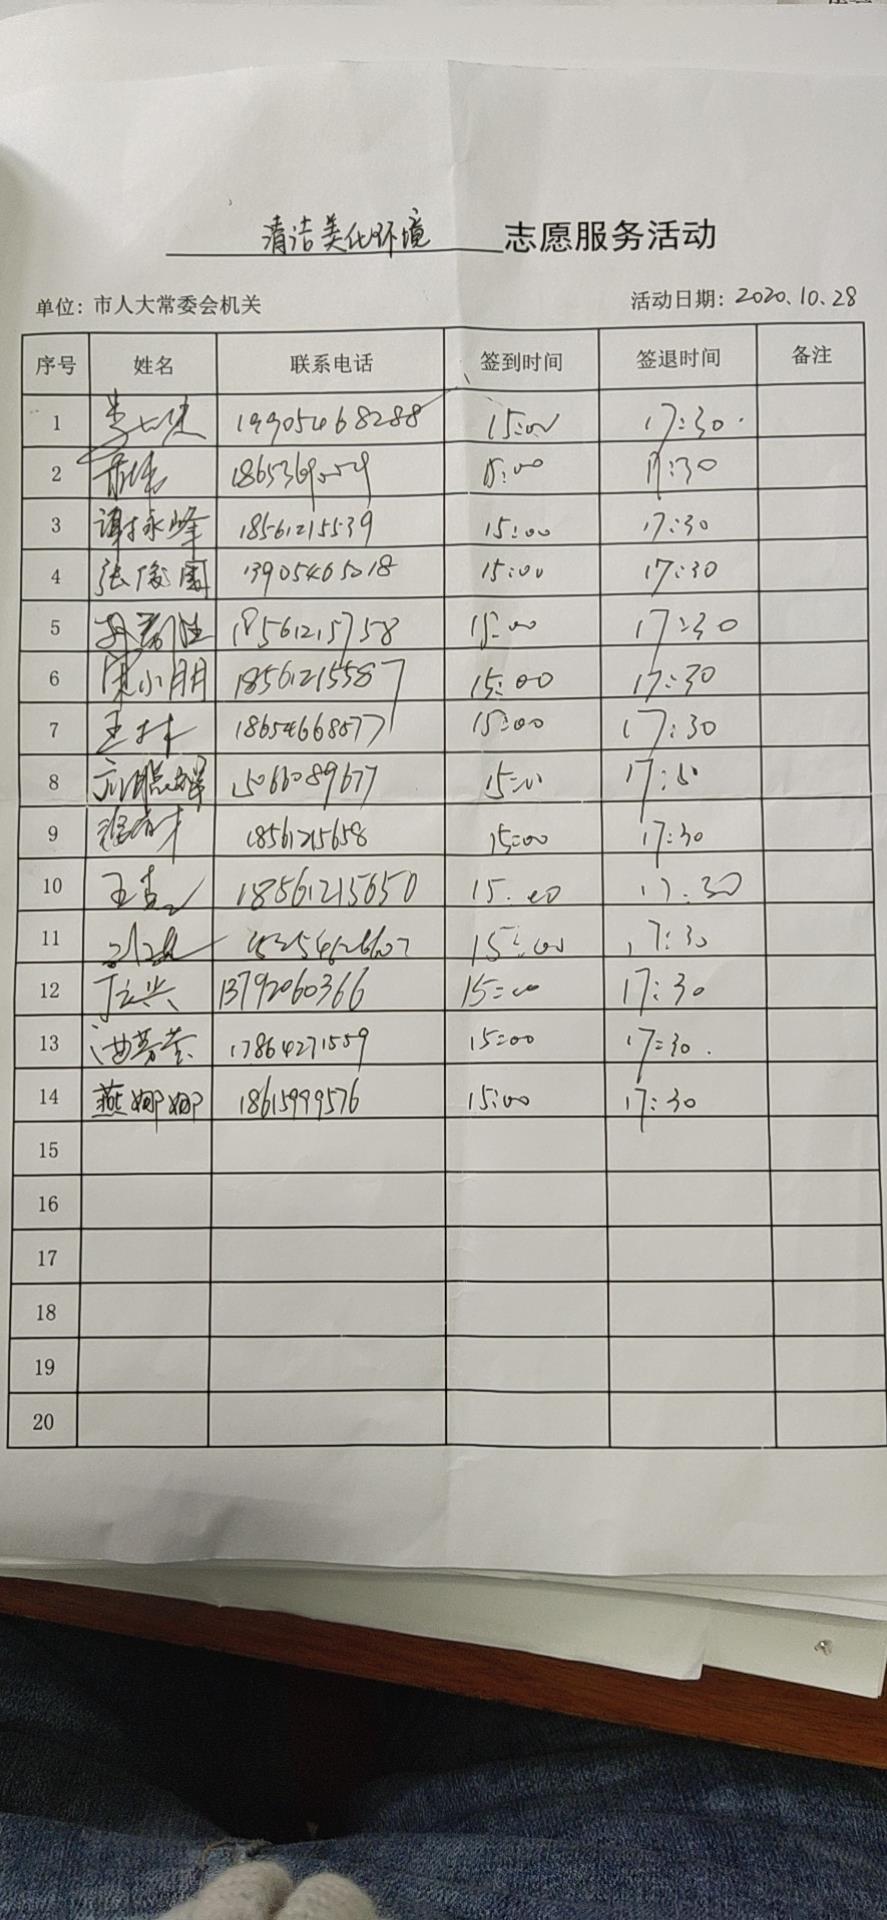 清洁美化环境 志愿服务活动
单位：市人大常委会机关 活动日期：2020.10.28
序号 姓名 联系电话 签到时间 签退时间 备注
1 19905468288 15:00 17:30
2 15:00 17:30
3 谢永峰 18561215539 15:00 17:30
4 张俊国 13905465018 15:00 17:30
5 18561215758 15:00 17:30
6 宋小朋 18561215587 15:00 17:30
7 王林 18654668577 15:00 17:30
8 15066089677 15:00
9 18561215658 15:00 17:30
10 18561215650 15:00 17:30
11 15:00 17:30
12 13792060366 15:00 17:30
13 17864271559 15:00 17:30
14 燕娜娜 18615999576 15:00 17:30
15
16
17
18
19
20